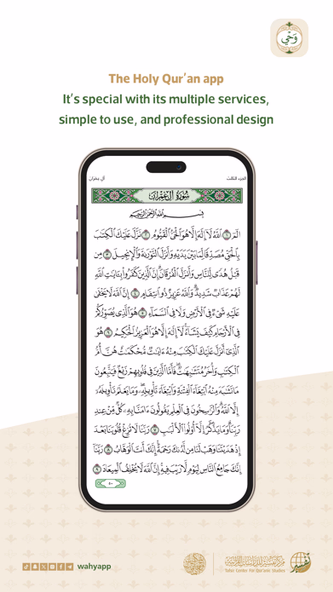 وَحْي
The Holy Qur'an app
It's special with its multiple services,
simple to use, and professional design
آل عمران
الجزء الثالث
سُورَةُ آلِ عِمْرَان
بِسْمِ اللَّهِ الرَّحْمَٰنِ الرَّحِيمِ
الٓمٓ ١ ٱللَّهُ لَآ إِلَٰهَ إِلَّا هُوَ ٱلۡحَيُّ ٱلۡقَيُّومُ ٢ نَزَّلَ عَلَيۡكَ ٱلۡكِتَٰبَ
بِٱلۡحَقِّ مُصَدِّقٗا لِّمَا بَيۡنَ يَدَيۡهِ وَأَنزَلَ ٱلتَّوۡرَىٰةَ وَٱلۡإِنجِيلَ ٣ مِن
قَبۡلُ هُدٗى لِّلنَّاسِ وَأَنزَلَ ٱلۡفُرۡقَانَۗ إِنَّ ٱلَّذِينَ كَفَرُواْ بِـَٔايَٰتِ ٱللَّهِ
لَهُمۡ عَذَابٞ شَدِيدٞۗ وَٱللَّهُ عَزِيزٞ ذُو ٱنتِقَامٍ ٤ إِنَّ ٱللَّهَ لَا يَخۡفَىٰ
عَلَيۡهِ شَيۡءٞ فِي ٱلۡأَرۡضِ وَلَا فِي ٱلسَّمَآءِ ٥ هُوَ ٱلَّذِي يُصَوِّرُكُمۡ
فِي ٱلۡأَرۡحَامِ كَيۡفَ يَشَآءُۚ لَآ إِلَٰهَ إِلَّا هُوَ ٱلۡعَزِيزُ ٱلۡحَكِيمُ ٦ هُوَ
ٱلَّذِيٓ أَنزَلَ عَلَيۡكَ ٱلۡكِتَٰبَ مِنۡهُ ءَايَٰتٞ مُّحۡكَمَٰتٌ هُنَّ أُمُّ
ٱلۡكِتَٰبِ وَأُخَرُ مُتَشَٰبِهَٰتٞۖ فَأَمَّا ٱلَّذِينَ فِي قُلُوبِهِمۡ زَيۡغٞ فَيَتَّبِعُونَ
مَا تَشَٰبَهَ مِنۡهُ ٱبۡتِغَآءَ ٱلۡفِتۡنَةِ وَٱبۡتِغَآءَ تَأۡوِيلِهِۦۖ وَمَا يَعۡلَمُ تَأۡوِيلَهُۥٓ
إِلَّا ٱللَّهُۗ وَٱلرَّٰسِخُونَ فِي ٱلۡعِلۡمِ يَقُولُونَ ءَامَنَّا بِهِۦ كُلّٞ مِّنۡ عِندِ
رَبِّنَاۗ وَمَا يَذَّكَّرُ إِلَّآ أُوْلُواْ ٱلۡأَلۡبَٰبِ ٧ رَبَّنَا لَا تُزِغۡ قُلُوبَنَا بَعۡدَ
إِذۡ هَدَيۡتَنَا وَهَبۡ لَنَا مِن لَّدُنكَ رَحۡمَةًۚ إِنَّكَ أَنتَ ٱلۡوَهَّابُ ٨ رَبَّنَآ
إِنَّكَ جَامِعُ ٱلنَّاسِ لِيَوۡمٖ لَّا رَيۡبَ فِيهِۚ إِنَّ ٱللَّهَ لَا يُخۡلِفُ ٱلۡمِيعَادَ ٩
٥٠
wahyapp
مركز تفسير للدراسات القرآنية
Tafsir Center For Qur'anic Studies
تفسير